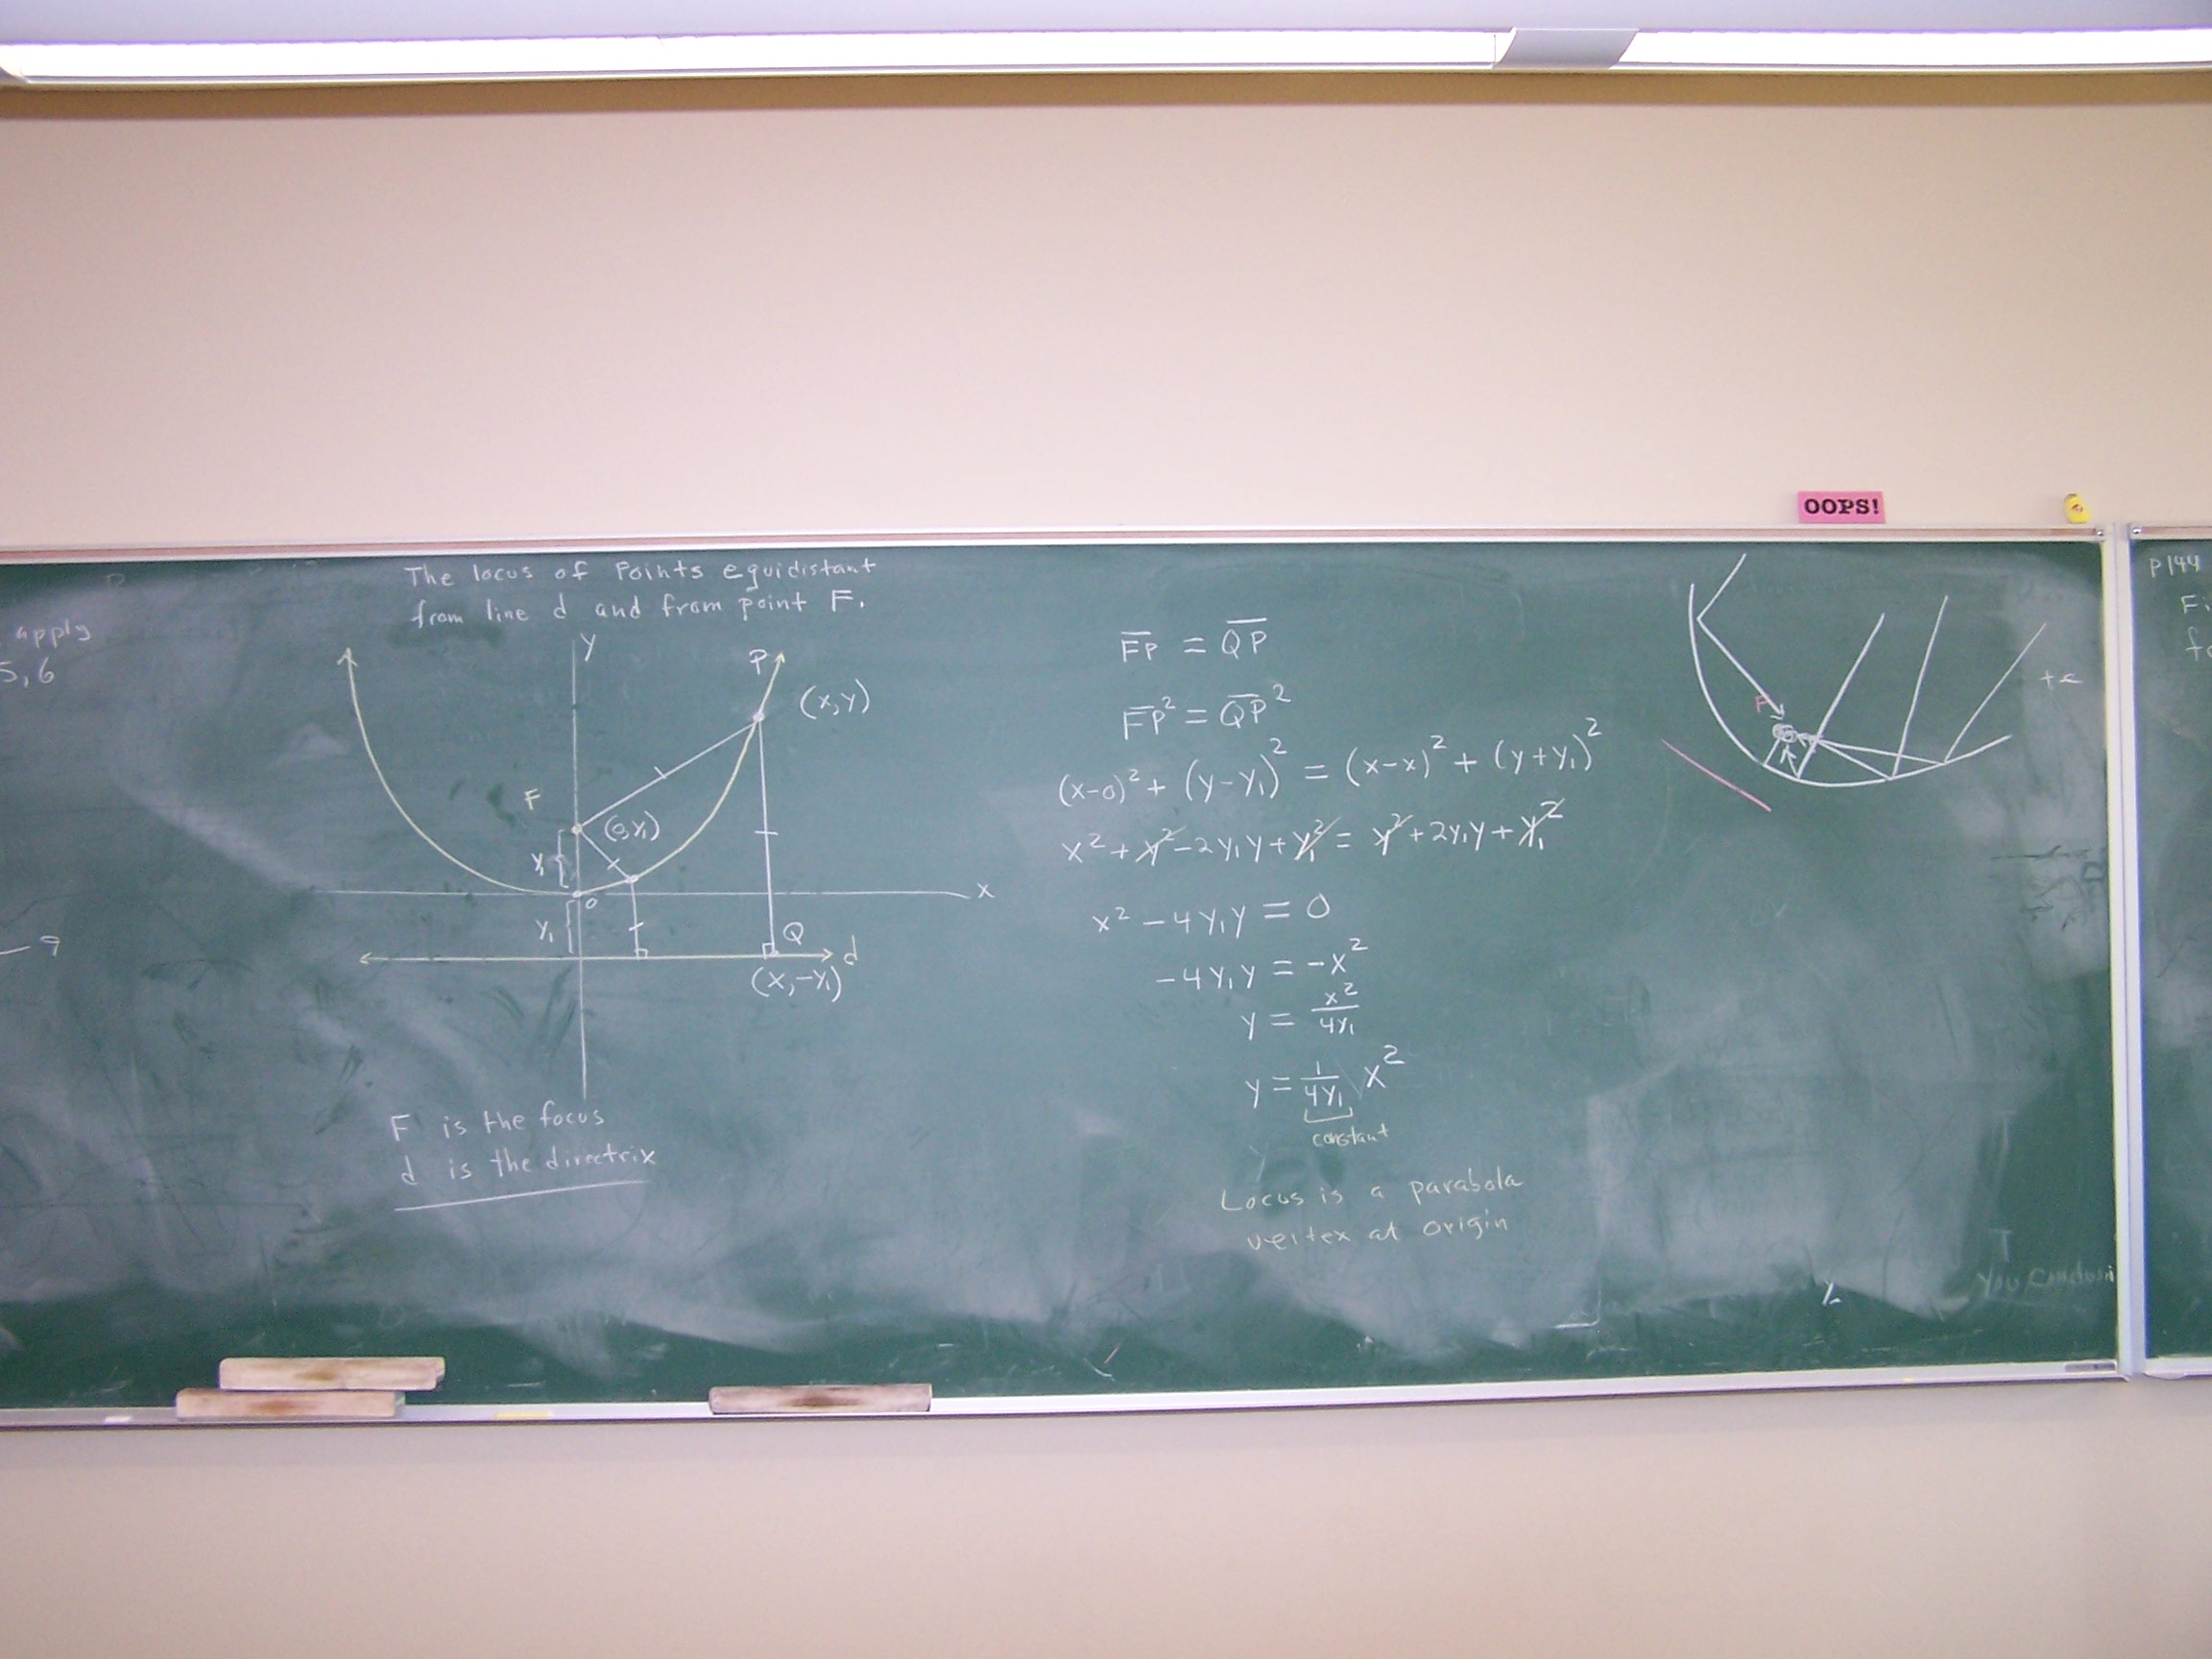 OOPS!
apply
5, 6
9
The locus of Points equidistant
from line d and from point F.
y
P
(x,y)
F
(0,y₁)
y₁
x
o
y₁
Q
d
(x,-y₁)
F is the focus
d is the directrix
F̅P̅ = Q̅P̅
F̅P̅² = Q̅P̅²
(x-0)² + (y-y₁)² = (x-x)² + (y+y₁)²
x² + y² - 2y₁y + y₁² = y² + 2y₁y + y₁²
x² - 4y₁y = 0
-4y₁y = -x²
y = x²/4y₁
y = 1/4y₁ x²
constant
Locus is a parabola
vertex at origin
F
P144